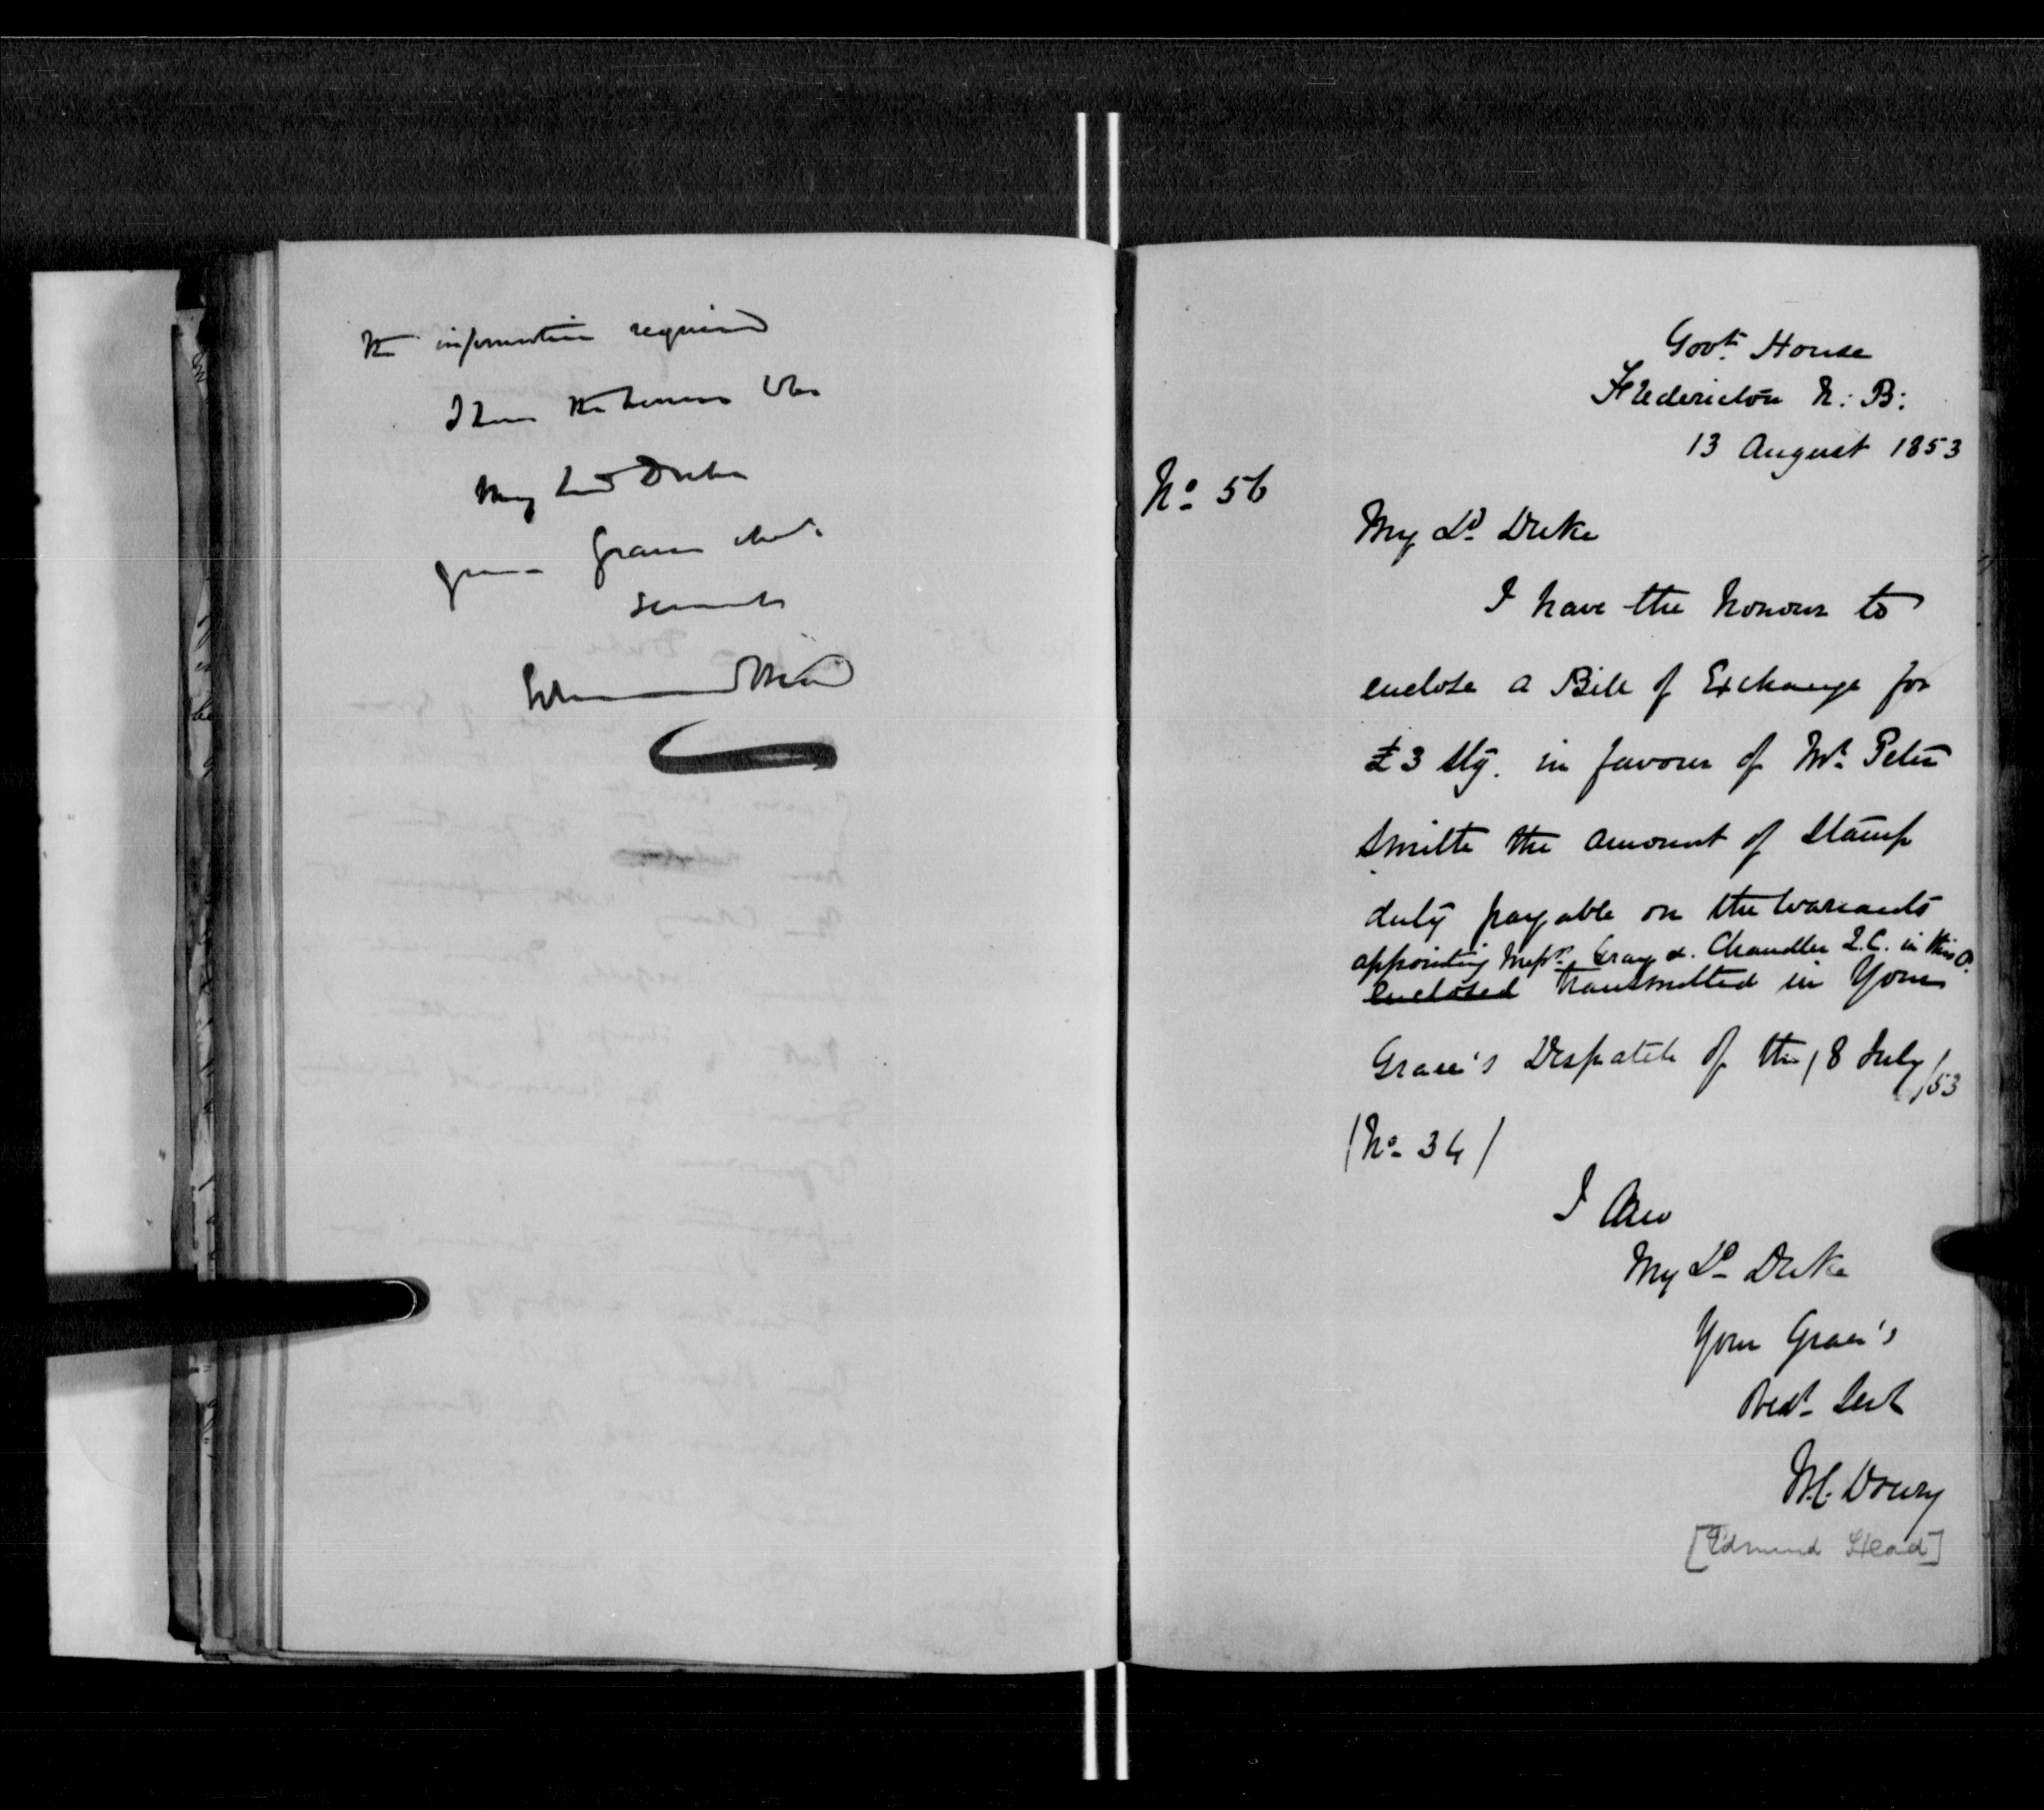 the information required
I have the honour to be
My Lord Duke
your Graces obdt
servant
Edmund Head
Govt House
Fredericton N: B:
13 August 1853
No 56
My Ld Duke
I have the honour to
enclose a Bill of Exchange for
£3 Stg. in favour of Mr Peter
Smith the amount of Stamp
duty payable on the Warrants
appointing Messrs Gray & Chandler L.C. in this
enclosed transmitted in Your
Grace's Despatch of the 18 July /53
(No 34)
I am
My Ld Duke
Your Grace's
Obedt Servt
[Edmund Head]